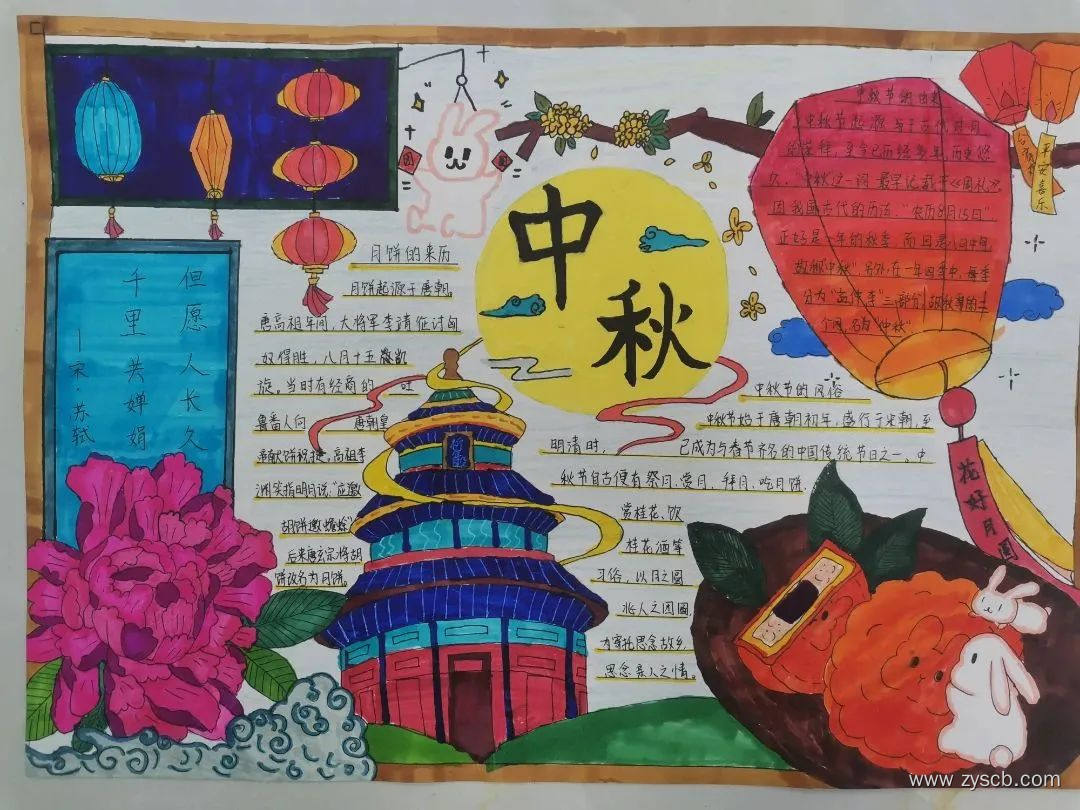 中秋
但愿人长久
千里共婵娟
—宋·苏轼
月饼的来历
月饼起源于唐朝。
唐高祖年间，大将军李靖征讨匈
奴得胜，八月十五凯
旋。当时有经商的 吐
鲁番人向 唐朝皇
帝献饼祝捷。高祖李
渊笑指明月说：“应邀
胡饼邀蟾蜍”
后来唐玄宗将胡
饼改名为月饼。
中秋节的由来
中秋节起源与于古代对月
的崇拜，至今已历经多年，历史悠
久。“中秋”这一词最早记载于《周礼》。
因我国古代的历法，“农历8月15日”
正好是一年的秋季，而
故称“中秋”另外，在一年四季中，每季
分为“孟仲季”三部分，
个月，名为“仲秋”
中秋节的风俗
中秋节始于唐朝初年，盛行于宋朝，至
明清时， 已成为与春节齐名的中国传统节日之一。中
秋节自古便有祭月、赏月、拜月、吃月饼、
赏桂花、饮
桂花酒等
习俗，以月之圆
兆人之团圆，
为寄托思念故乡，
思念亲人之情。
平安喜乐
花好月圆
团
圆
www.zyscb.com